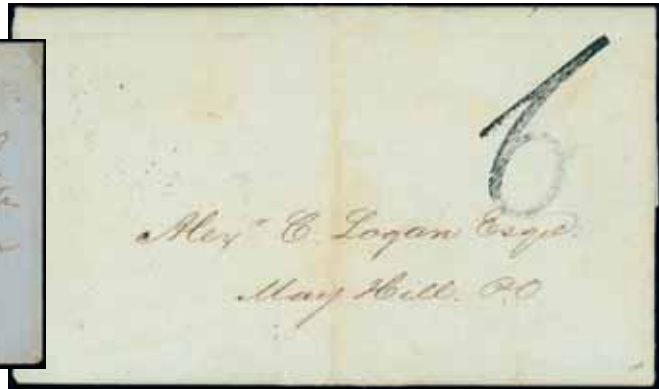 6
Alexr C. Logan Esqr.
May Hill. P.O